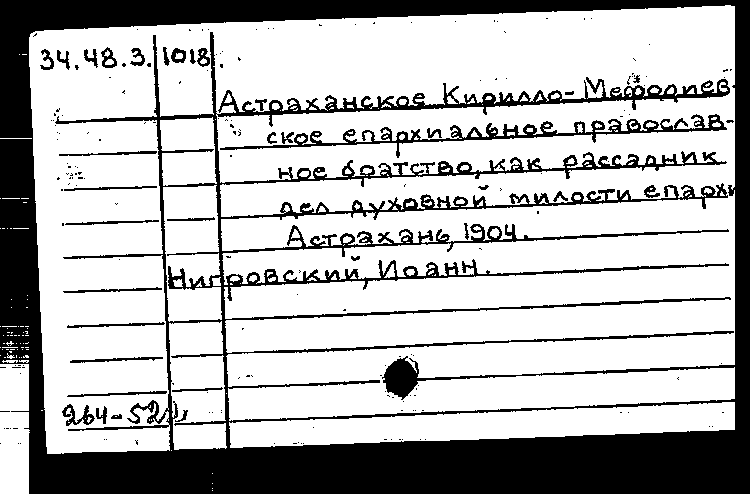 34.48.3. 1018.
Астраханское Кирилло-Мефодиев-
ское епархиальное православ-
ное братство, как рассадник
дел духовной милости епархи
Астрахань, 1904.
Нигровский, Иоанн.
264-52